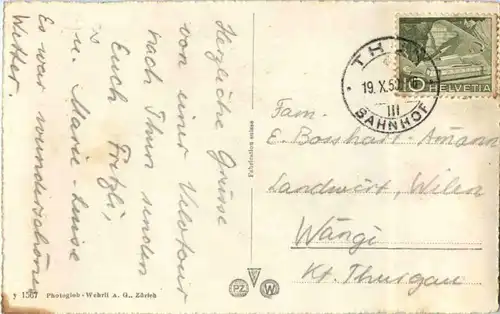 Herzliche Grüsse
von einer Velotour
nach Thun senden
Euch Fritzli,
u. Marie-Luise
Es war wunderschönes
Wetter.
Fabrication suisse
y 1567 Photoglob-Wehrli A. G., Zürich
PZ
W
THUN
19. X. 50
III
BAHNHOF
10 HELVETIA
Fam.
E. Bosshart-Amann
Landwirt, Wilen
Wängi
Kt. Thurgau